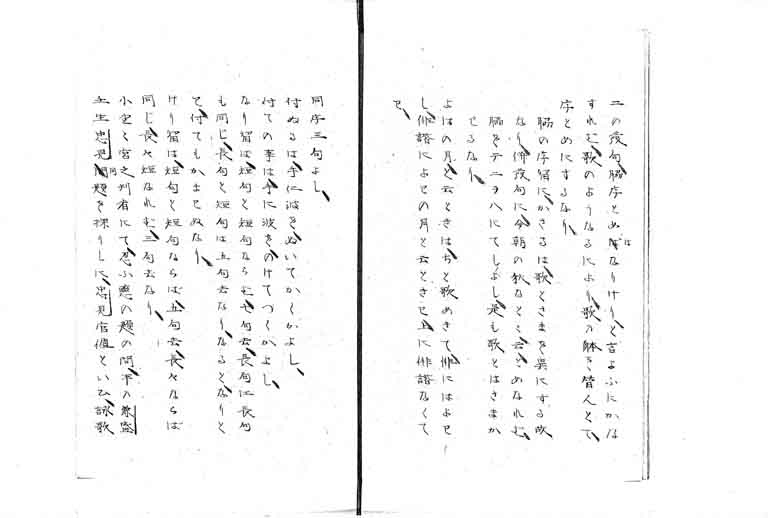 二の発句脇序とめぬはなりけりと吉よふにかな
すれむ歌のようなるにより歌の躰を皆人とて
字とめにするなり
脇の字留にかさるは歌とさまを異にする故
なり俳後句に今朝の秋なとと云きめなれむ
脇をテニヲハにてしよし是も歌とはさまか
せるなり
よはの月と云ときはちと歌めきて俳にはよせ
し俳諧によせの月と云ときせ上に俳諧なくて
せ
同字三句よし
付ぬるは手に波をぬいてかくかよし
付ての事は手に波をのけてつくかよし
なり留は短句と短句ならむ七句去長句に長句
も同し長句と短句は五句去なりなるとなりと
を付てもかませぬなり
けり留は短句と短句ならは五句去長々ならは
同し長々短なれむ三句去なり
小倉を宮之判者にて忍ふ恋の題の間平の兼盛
壬生忠見同題を探りしに忠見信値といひ詠歌